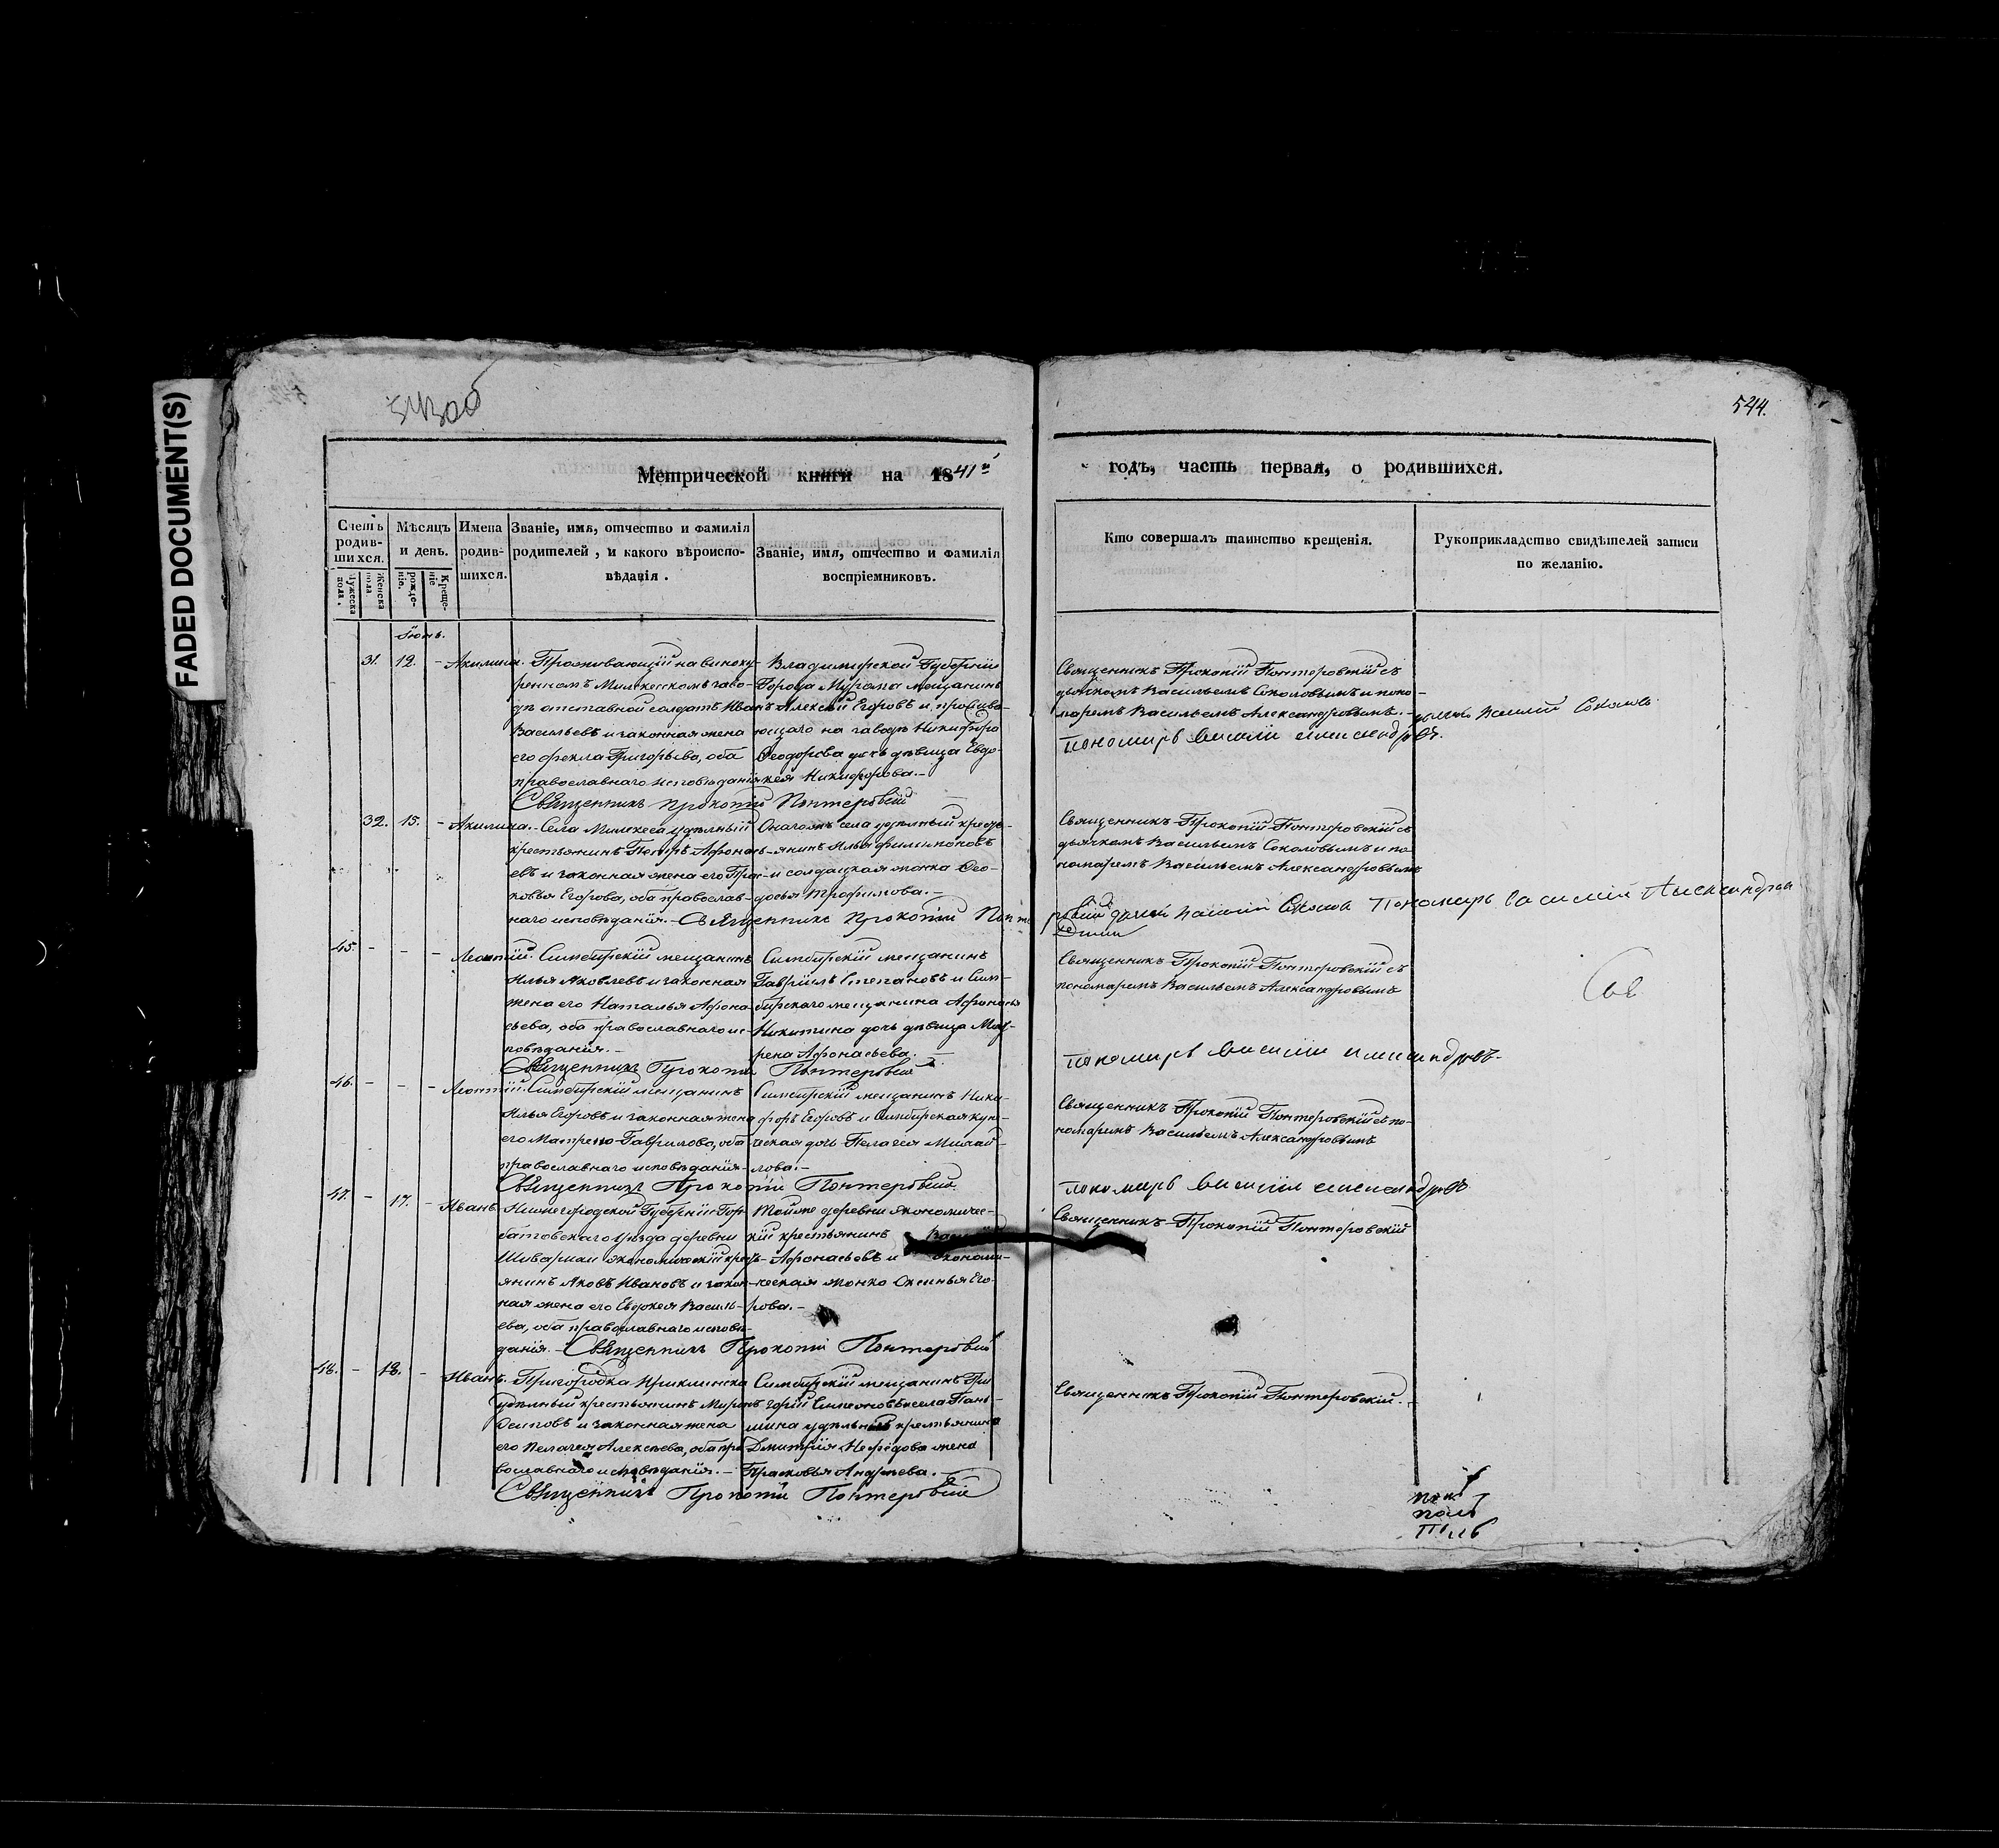 FADED DOCUMENT(S)
543 об
544.
Метрической книги на 1841й
годъ, часть первая, о родившихся.
Счетъ родившихся.
Мужеска пола.
Женска пола.
Мѣсяцъ и день.
рожденіе.
Крещеніе
Имена родившихся.
Званіе, имя, отчество и фамилія
родителей, и какого вѣроиспо-
вѣданія.
Званіе, имя, отчество и фамилія
воспріемниковъ.
Кто совершалъ таинство крещенія.
Рукоприкладство свидѣтелей записи
по желанію.
Іюнь.
31. 12. - Акилина.
Проживающій на виноку-
ренномъ Мелекесскомъ заво-
дѣ отставной солдатъ Иванъ
Васильевъ и законная жена
его Фекла Григорьева, оба
православнаго исповѣданія
Владимирской Губерніи
Города Мурома мещанинъ
Алексѣй Егоровъ и прожива-
ющаго на заводѣ Никифора
Ѳеодорова дочь дѣвица Евдо-
кея Никифорова.-
Священникъ Прокопій Понтеровскій съ
дьячкомъ Васильемъ Соколовымъ и поно-
маремъ Васильемъ Александровымъ.-
Соколовъ
пономарь Василій Александровъ.
Священникъ Прокопій Понтеровскій
32. 15. - Акилина.-
Села Мелекеса удѣльный
крестьянинъ Петръ Афонась-
евъ и законная жена его Прас-
ковья Егорова, оба православ-
наго исповѣданія.-
Онагожъ села удѣльный кресть-
янинъ Илья Филимоновъ
и солдацкая жонка Ѳео-
досья Трофимова.-
Священникъ Прокопій Понтеровскій съ
дьячкомъ Васильемъ Соколовымъ и по-
номаремъ Васильемъ Александровымъ
Священникъ Прокопій Понте
ровскій Пономарь Василій Александров
45. - - - Леонтій.
Симбирскій мещанинъ
Илья Яковлевъ и законная
жена его Наталья Афона-
сьева, оба православнаго ис-
повѣданія.-
Симбирскій мещанинъ
Гавріилъ Степановъ и Сим-
бирскаго мещанина Афонасья
Никитина дочь дѣвица Мат-
рена Афонасьева.-
Священникъ Прокопій Понтеровскій съ
пономаремъ Васильемъ Александровымъ
пономарь Василій Александровъ-
Священникъ Прокопій Понтеровскій
46. - - - Леонтій.
Симбирскій мещанинъ
Илья Егоровъ и законная жена
его Матрена Гаврилова, оба
православнаго исповѣданія-
Симбирскій мещанинъ Ники-
форъ Егоровъ и Симбирская купе-
ческая дочь Пелагея Михай-
лова.-
Священникъ Прокопій Понтеровскій съ по-
номаремъ Васильемъ Александровымъ
пономарь Василій Александровъ
Священникъ Прокопій Понтеровскій
47. - 17. - Иванъ-
Нижегородской Губерніи Гор-
батовскаго уѣзда деревни
экономическій кресть-
янинъ Яковъ Ивановъ и закон-
ная жена его Евдокея Василь-
ева, оба православнаго исповѣ-
данія.-
Тойже деревни экономичес-
кій крестьянинъ
Афонасьевъ и экономи-
ческая жонка Оксинья Его-
рова.-
Священникъ Прокопій Понтеровскій
Священникъ Прокопій Понтеровскій
48. - 18. - Иванъ.
Пригородка Ерыклинска
удѣльный крестьянинъ Миронъ
Осиповъ и законная жена
его Пелагея Алексѣева, оба пра
вославнаго исповѣданія.-
Симбирскій мещанинъ Гри
горій Симеоновъ и села
удѣльнаго крестьянина
Дмитрія Нефедова жена
Прасковья Андреева.-
Священникъ Прокопій Понтеровскій.-
Священникъ Прокопій Понтеровскій